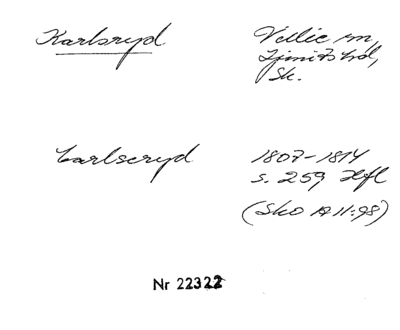 Karlsryd
Vellie sn,
Ljunits hd,
Sk.
Carlseryd
1807-1814
s. 259 Hfl
(Sko A II:98)
Nr 22322